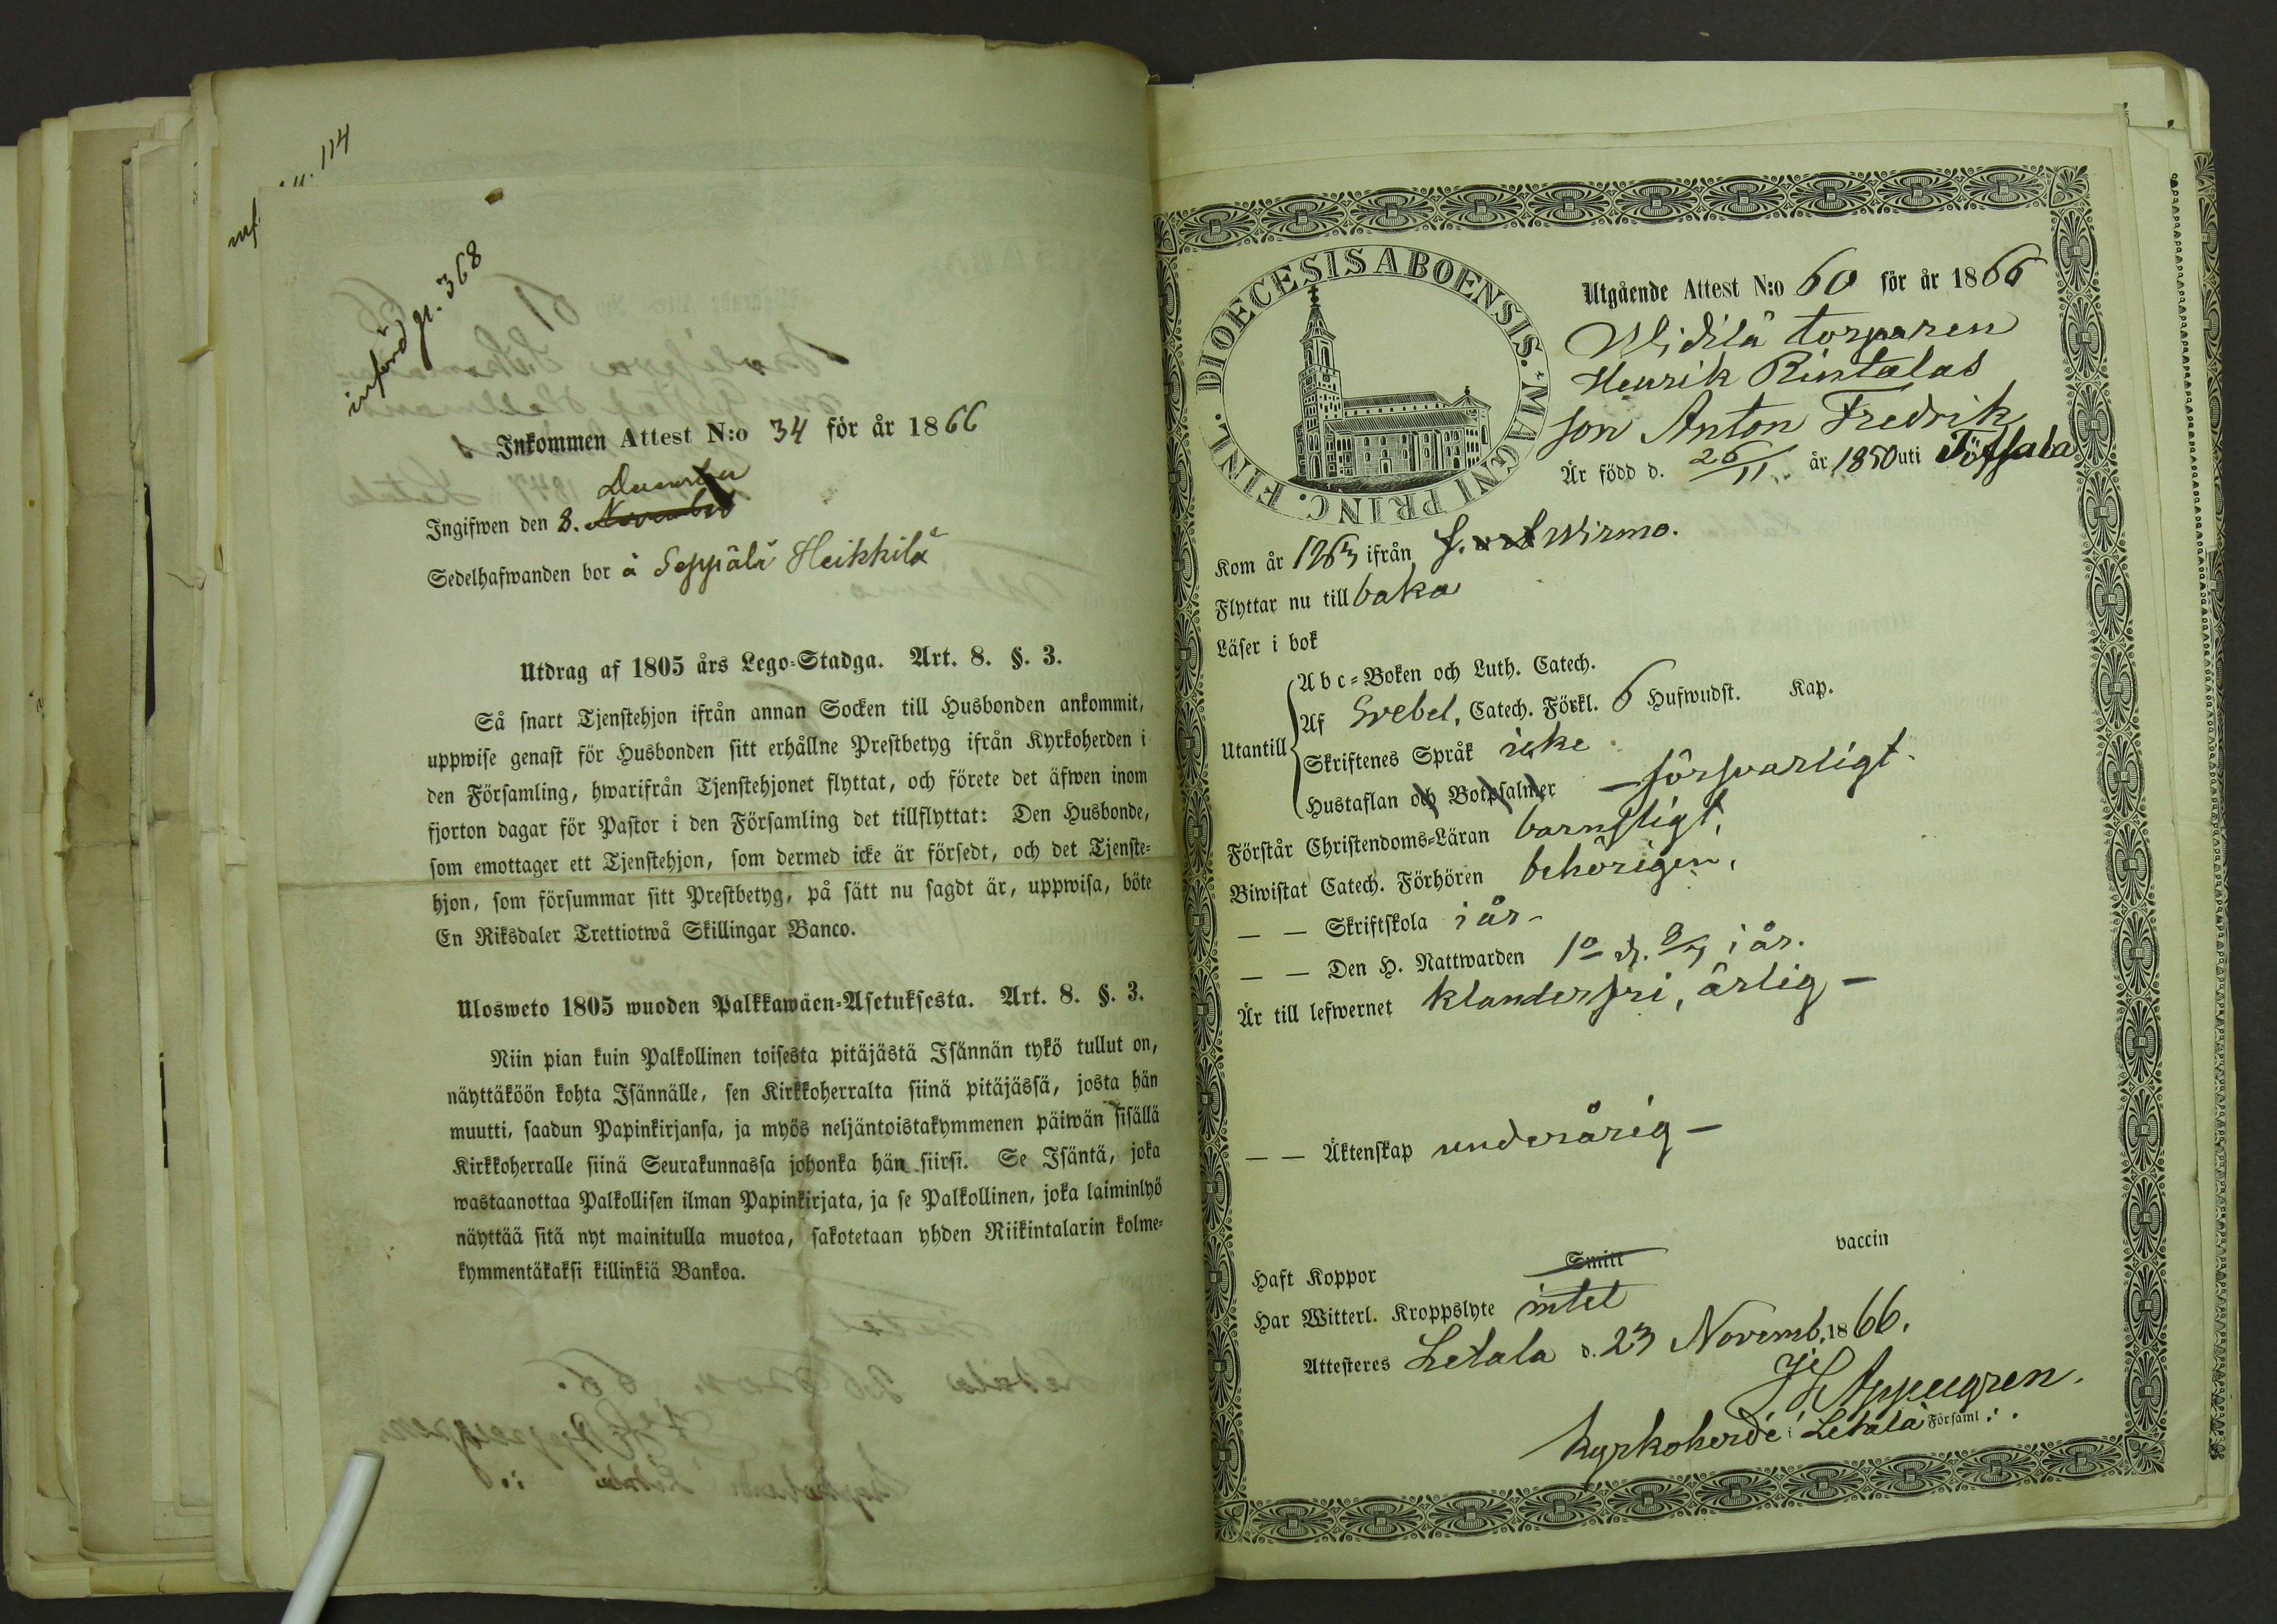 u. 114
inf.
införd p. 368
Inkommen Attest N:o 34 för år 1866
December
Ingifwen den 8. November
Sedelhafwanden bor å Seppälä Heikkilä
Utdrag af 1805 års Lego-Stadga. Art. 8. §. 3.
Så snart Tjenstehjon ifrån annan Socken till Husbonden ankommit,
uppwise genast för Husbonden sitt erhållne Prestbetyg ifrån Kyrkoherden i
den Församling, hwarifrån Tjenstehjonet flyttat, och förete det äfwen inom
fjorton dagar för Pastor i den Församling det tillflyttat: Den Husbonde,
som emottager ett Tjenstehjon, som dermed icke är försedt, och det Tjenste-
hjon, som försummar sitt Prestbetyg, på sätt nu sagdt är, uppwisa, böte
En Riksdaler Trettiotwå Skillingar Banco.
Ulosweto 1805 wuoden Palkkawäen-Asetuksesta. Art. 8. §. 3.
Niin pian kuin Palkollinen toisesta pitäjästä Isännän tykö tullut on,
näyttäköön kohta Isännälle, sen Kirkkoherralta siinä pitäjässä, josta hän
muutti, saadun Papinkirjansa, ja myös neljäntoistakymmenen päiwän sisällä
Kirkkoherralle siinä Seurakunnassa johonka hän siirsi. Se Isäntä, joka
wastaanottaa Palkollisen ilman Papinkirjata, ja se Palkollinen, joka laiminlyö
näyttää sitä nyt mainitulla muotoa, sakotetaan yhden Riikintalarin kolme-
kymmentäkaksi killinkiä Bankoa.
DIOECESIS ABOENSIS. * MAGNI PRINC. FINL.
Utgående Attest N:o 60 för år 1866
Widilä torparen
Henrik Rintalas
son Anton Fredrik
Är född d. 26/11 år 1850 uti Töfsala
Kom år 1863 ifrån Wirmo.
Flyttar nu till baka
Läser i bok
Utantill
Abc-Boken och Luth. Catech.
Af Svebel. Catech. Förkl. 6 Hufwudst. Kap.
Skriftenes Språk icke
Hustaflan och Botpsalmer — försvarligt.
Förstår Christendoms-Läran barnsligt,
Biwistat Catech. Förhören behörigen,
— — Skriftskola i år -
— — Den H. Nattwarden 1o g. i år.
Är till lefwernet klanderfri, ärlig —
— — Äktenskap underårig —
Haft Koppor Smitt vaccin
Har Witterl. Kroppslyte intet
Attesteres Letala d. 23 Novemb. 1866.
Appengren.
Kyrkoherde i Letala Församl.